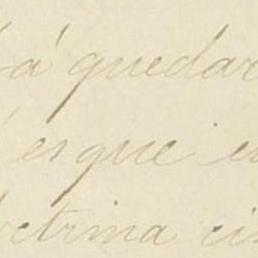 á quedar
es que
doctrina